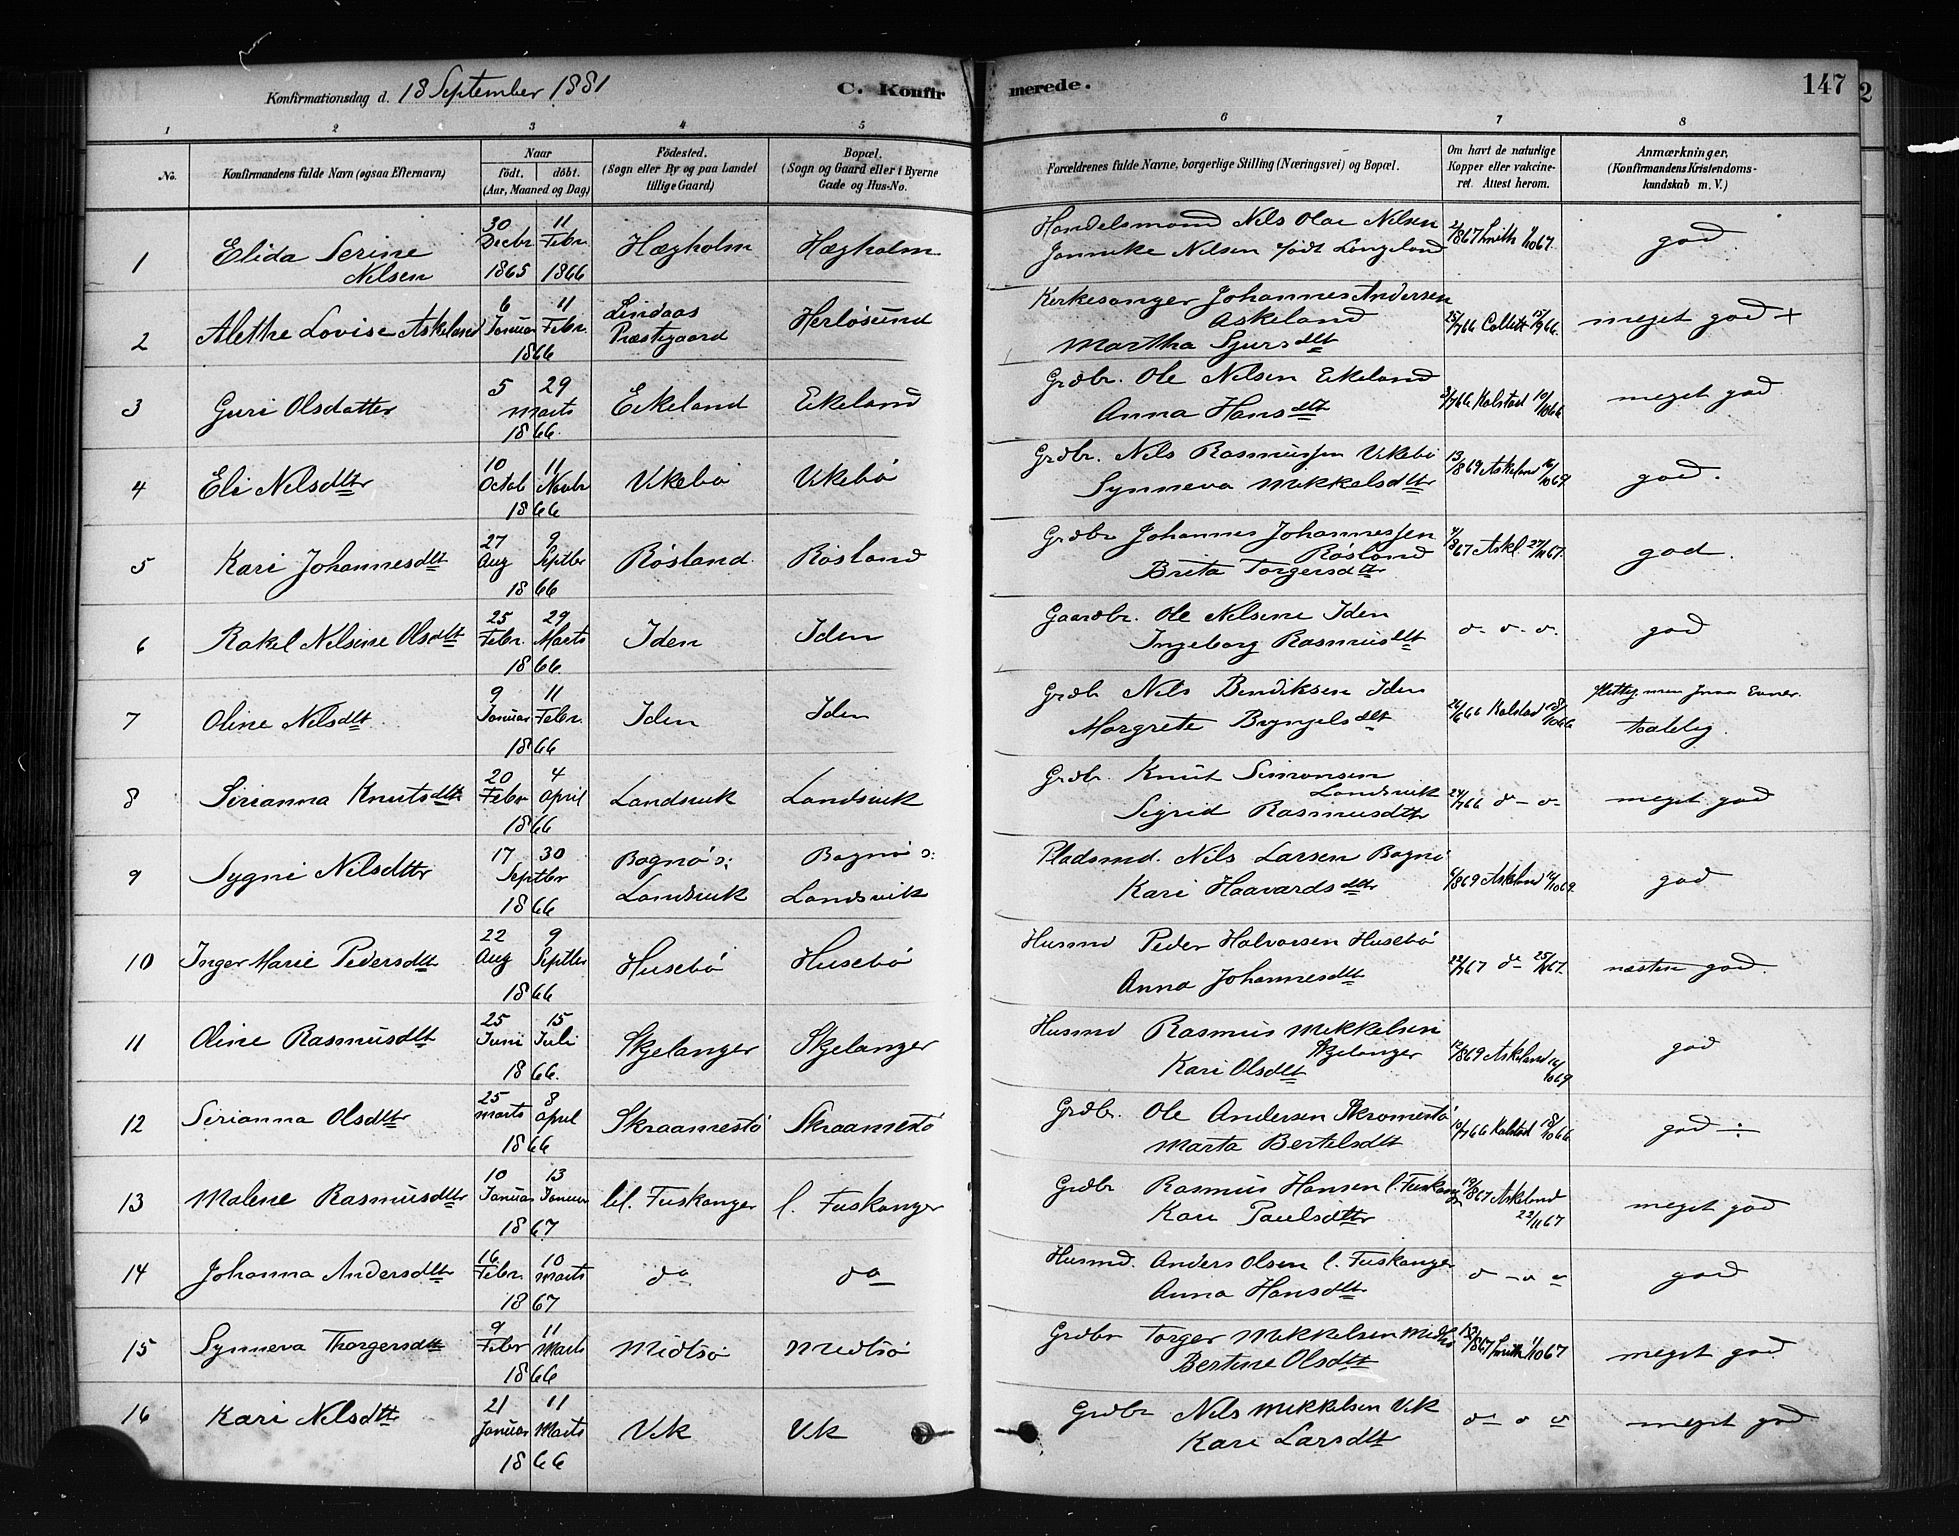 Konfirmationsdag d. 18 September 1881 C. Konfirmerede. 147
2
1 2 3 4 5 6 7 8
No.
Konfirmandens fulde Navn (ogsaa Efternavn)
Naar
født, døbt.
(Aar, Maaned og Dag)
Fødested.
(Sogn eller By og paa Landet
tillige Gaard)
Bopæl.
(Sogn og Gaard eller i Byerne
Gade og Hus-No.
Forældrenes fulde Navne, borgerlige Stilling (Næringsvei) og Bopæl.
Om havt de naturlige
Kopper eller vakcine-
ret. Attest herom.
Anmærkninger,
(Konfirmandens Kristendoms-
kundskab m. V.)
1 Elida Serine Nilsen
30 Decbr 1865 11 Febr. 1866
Hægholm Hægholm
Handelsmand Nils Olai Nilsen
Janneke Nilsen født Langeland
god.
2 Alethe Lovise Askeland
6 Januar 11 Febr. 1866
Lindaas Præstegaard Herløsund
Kirkesanger Johannes Andersen
Askeland
Martha Sjursdtt
25/7 66 Collett 15/9 66.
meget god +
3 Guri Olsdatter
5 29 Marts 1866.
Eikeland Eikeland
Grdbr. Ole Nilsen Eikeland
Anna Hansdtt
Kalstad
meget god
4 Eli Nilsdtter
10 Octob 11 Novbr 1866
Vikebø Vikebø
Grdbr. Nils Rasmussen Vikebø
Synneva Mikkelsdtter
13/8 69 Askeland 16/10 69
god.
5 Kari Johannesdtt
27 Aug 9 Septbr 1866
Røsland Røsland
Grdbr Johannes Johannessen
Røsland
Brita Torgersdtr
Askl. 27/11 67.
god.
6 Rakel Nilsine Olsdtt
25 Febr. 29 Marts 1866.
Iden Iden
Gaardbr. Ole Nilsene Iden
Ingeborg Rasmusdtt
god
7 Oline Nilsdtt.
9 Januar 11 Febr. 1866
Iden Iden
Grdb Nils Bendiksen Iden
Margrete Bryngelsdtt
26/6 66 Kalstad 18/10 66
flittig. men smaa Evner.
taalelig.
8 Serianna Knutsdtt
20 Febr 4 April 1866
Landsvik Landsvik
Grdbr. Knut Simonsen
Landsvik
Sigrid Rasmusdtr
24/7 66 d- o-
meget god
9 Sygni Nilsdtter
17 30 Septbr 1866
Bognø ɔ: Landsvik Bognø ɔ: Landsvik
Pladsmd. Nils Larsen Bognø
Kari Haavardsdtr
Askeland
god
10 Inger Marie Pedersdtt
22 Aug 9 Septbr 1866
Husebø Husebø
Husmd Peder Halvorsen Husebø
Anna Johannesdtt
22/7 67 do
næsten god.
11 Oline Rasmusdtt
25 Juni 15 Juli 1866.
Skjelanger Skjelanger
Husmd Rasmus Mikkelsen
Skjelanger
Kari Olsdtt
12/8 69 Askeland 16/10 69
god
12 Serianna Olsdtr
25 Marts 8 April 1866
Skraamestø Skraamestø
Grdbr. Ole Andersen Skromestø
Marta Bertelsdtt
10/7 66 Kalstad 18/10 66
god ÷
13 Malene Rasmusdtr
10 Januar 13 Januar 1867
lil. Fuskanger l. Fuskanger
Grdbr Rasmus Hansen l. Fuskanger
Kari Paulsdtr
19/8 67 Askeland
22/11 67
meget god
14 Johanna Andersdtr
16 Febr. 10 Marts 1867
do do
Husmd. Anders Olsen l. Fuskanger
Anna Hansdtr
god
15 Synneva Thorgersdtt
9 Febr 11 Marts 1866
Midtsø Midtsø
Grdbr Torger Mikkelsen Midtsø
Bertine Olsdtt
12/8 67 Smith 1/10 67
meget god
16 Kari Nilsdtt
21 Januar 11 Marts 1866
Vik Vik
Grdbr Nils Mikkelsen Vik
Kari Larsdtt
meget god